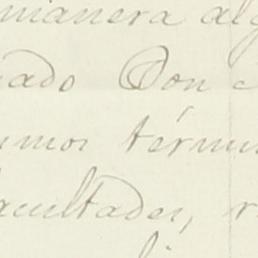 manera alg
ado Don
umos térmi
acultades, r